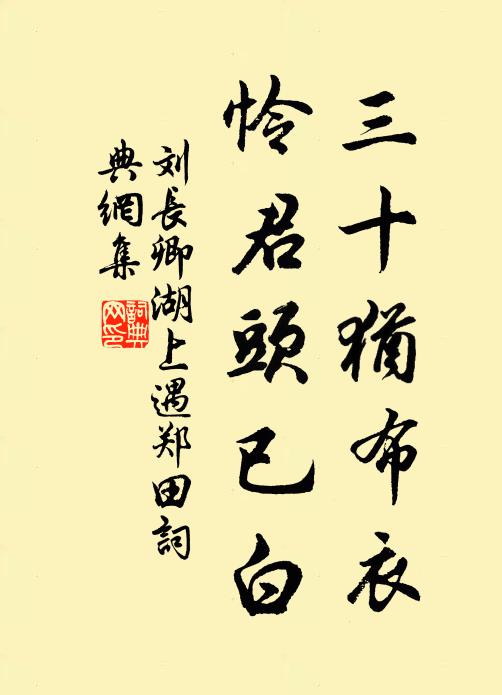 三十猶布衣
怜君頭已白
刘長卿湖上遇郑田詞
典網集
詞典
网印